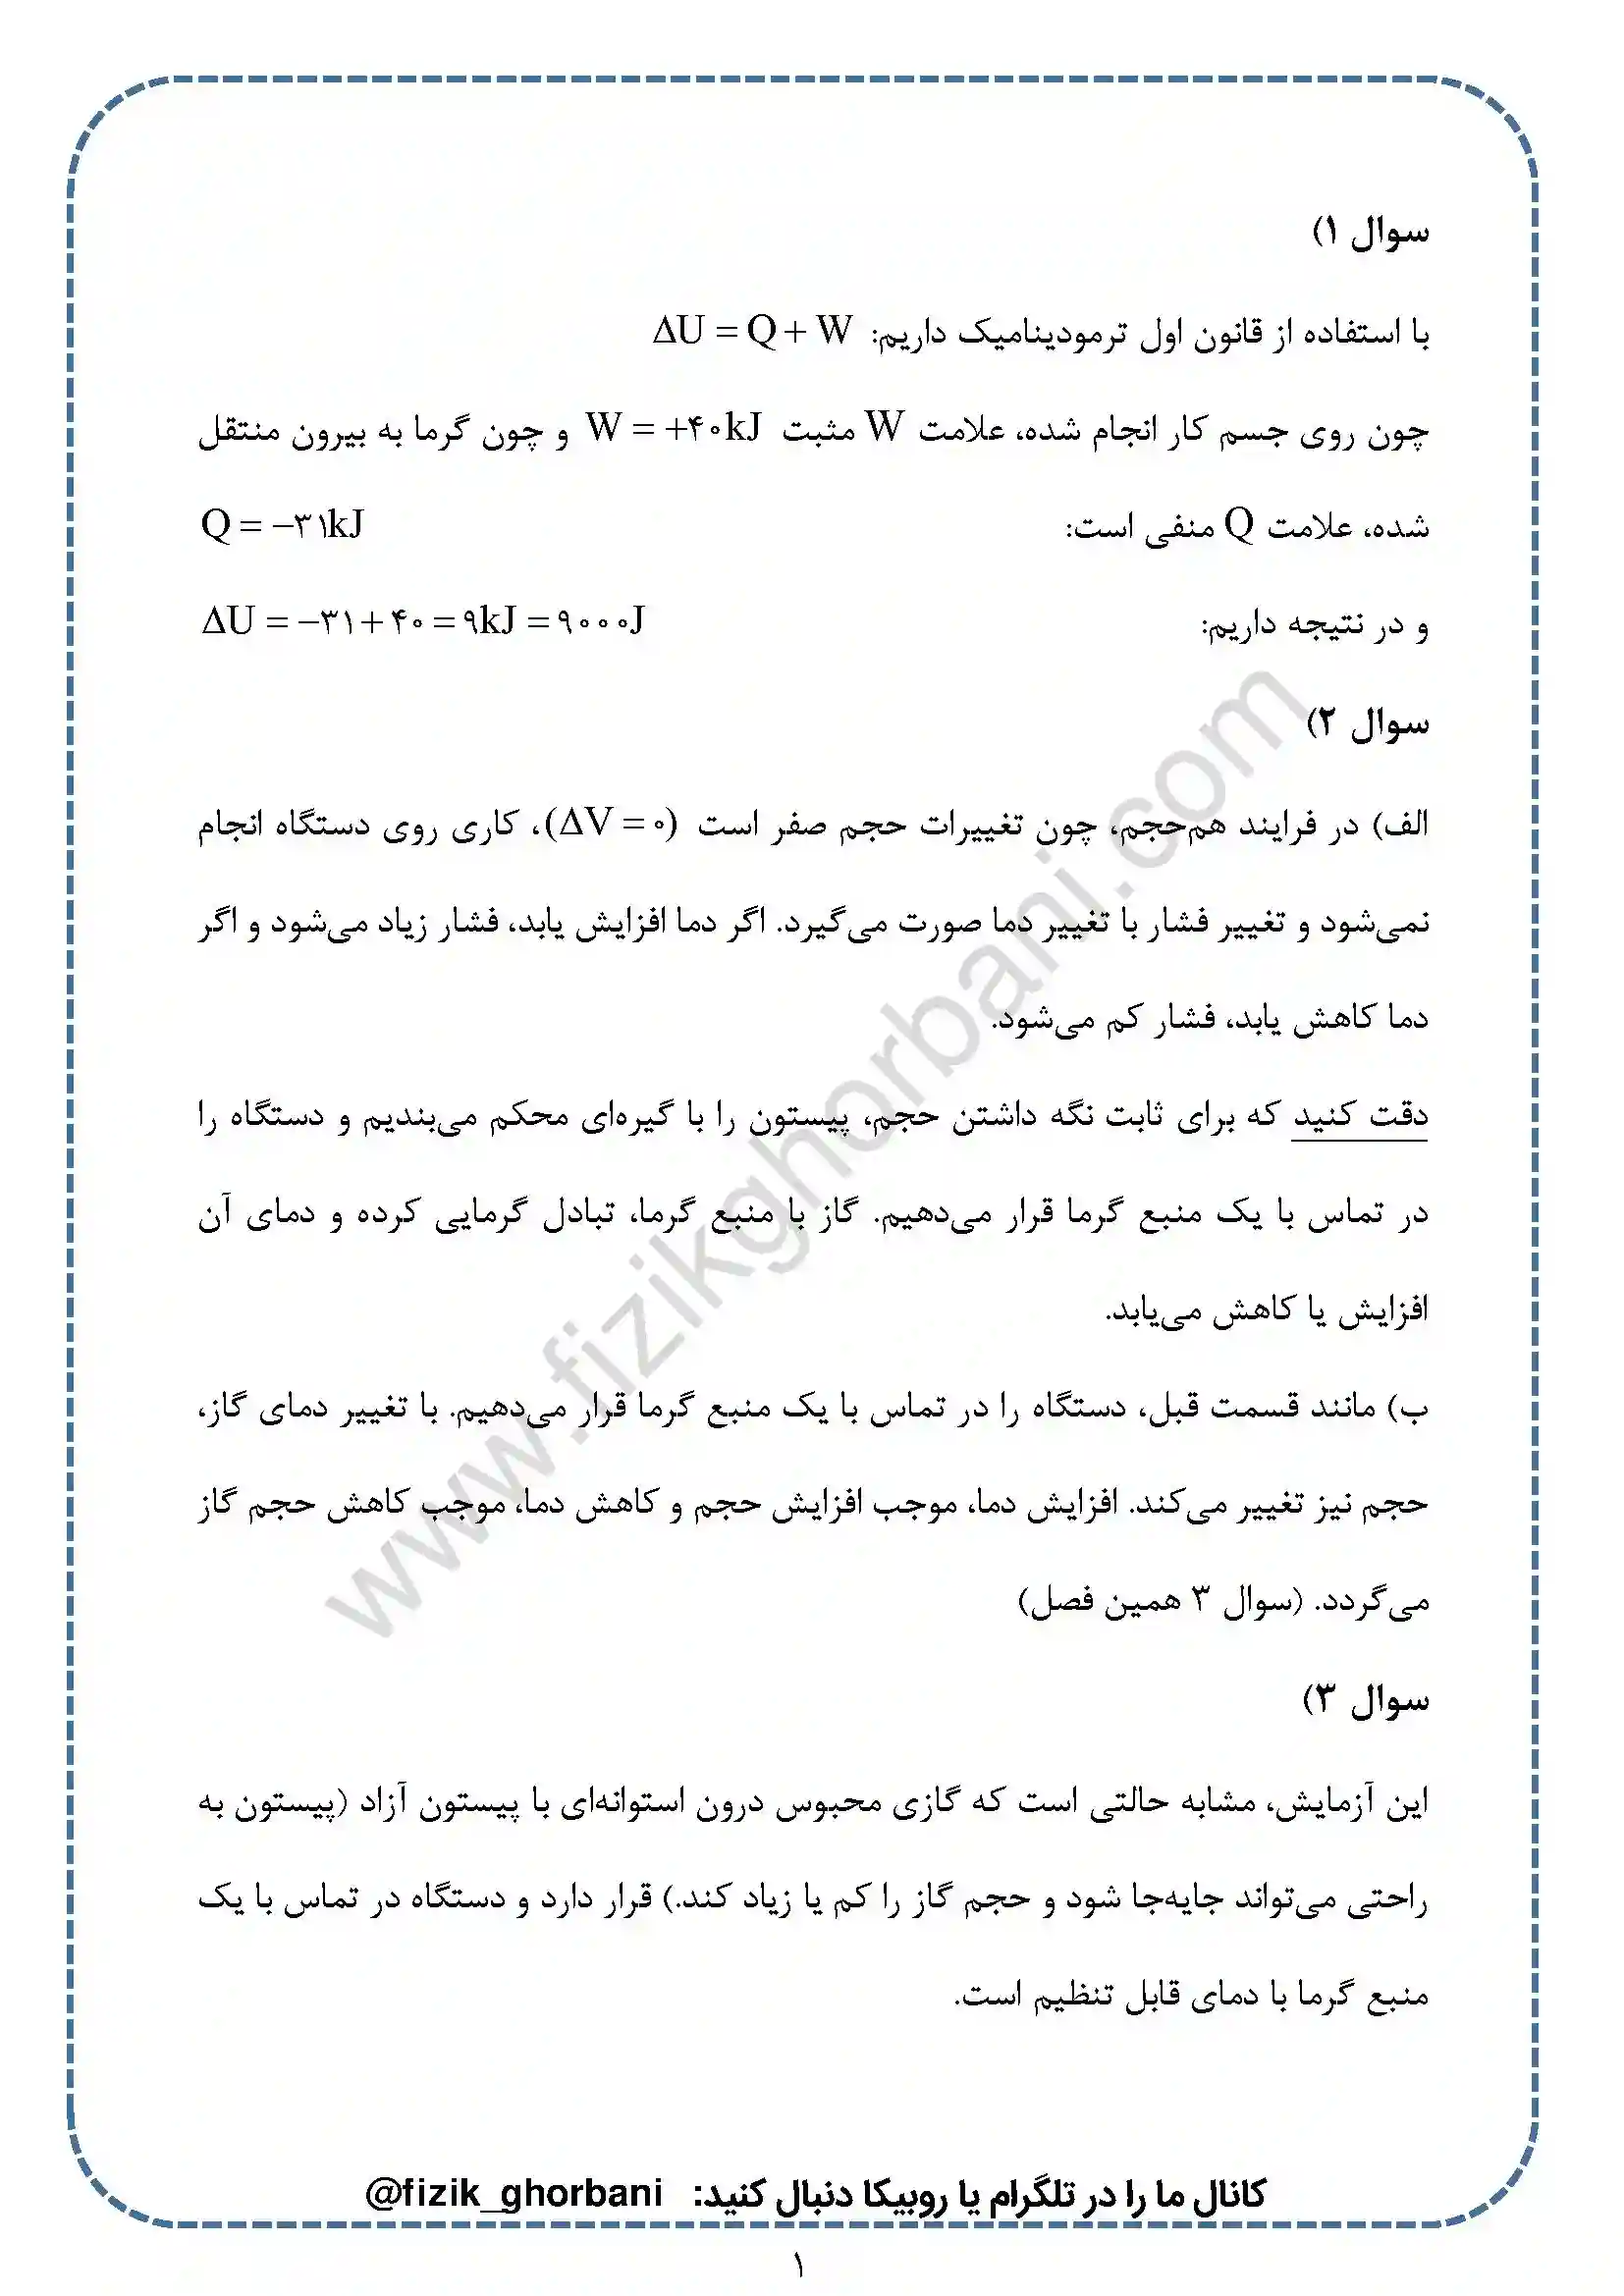 سوال ۱)
با استفاده از قانون اول ترمودینامیک داریم: ΔU = Q + W
چون روی جسم کار انجام شده، علامت W مثبت W = +۴۰kJ و چون گرما به بیرون منتقل
شده، علامت Q منفی است: Q = −۳۱kJ
و در نتیجه داریم: ΔU = −۳۱ + ۴۰ = ۹kJ = ۹۰۰۰J
سوال ۲)
الف) در فرایند هم‌حجم، چون تغییرات حجم صفر است (ΔV = ۰)، کاری روی دستگاه انجام
نمی‌شود و تغییر فشار با تغییر دما صورت می‌گیرد. اگر دما افزایش یابد، فشار زیاد می‌شود و اگر
دما کاهش یابد، فشار کم می‌شود.
دقت کنید که برای ثابت نگه داشتن حجم، پیستون را با گیره‌ای محکم می‌بندیم و دستگاه را
در تماس با یک منبع گرما قرار می‌دهیم. گاز با منبع گرما، تبادل گرمایی کرده و دمای آن
افزایش یا کاهش می‌یابد.
ب) مانند قسمت قبل، دستگاه را در تماس با یک منبع گرما قرار می‌دهیم. با تغییر دمای گاز،
حجم نیز تغییر می‌کند. افزایش دما، موجب افزایش حجم و کاهش دما، موجب کاهش حجم گاز
می‌گردد. (سوال ۳ همین فصل)
سوال ۳)
این آزمایش، مشابه حالتی است که گازی محبوس درون استوانه‌ای با پیستون آزاد (پیستون به
راحتی می‌تواند جایه‌جا شود و حجم گاز را کم یا زیاد کند.) قرار دارد و دستگاه در تماس با یک
منبع گرما با دمای قابل تنظیم است.
www.fizikghorbani.com
کانال ما را در تلگرام یا روبیکا دنبال کنید: @fizik_ghorbani
۱